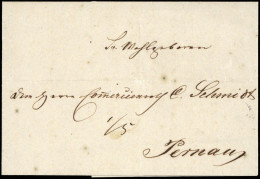 Sr Wohlgeboren
den Herrn Comerciant C. Schmidt
1/5
Pernau